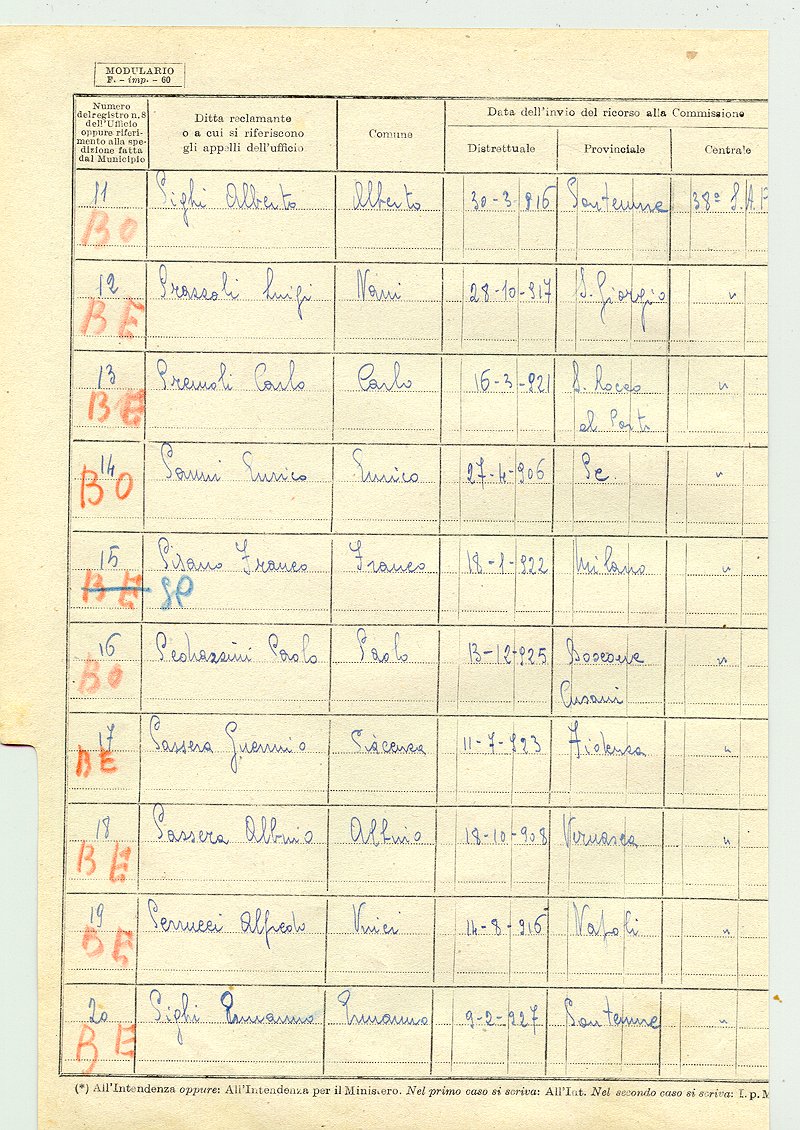 MODULARIO
F. - imp. - 60
Numero
del registro n. 8
dell'Ufficio
oppure riferi-
mento alla spe-
dizione fatta
dal Municipio
Ditta reclamante
o a cui si riferiscono
gli appelli dell'ufficio
Comune
Data dell'invio del ricorso alla Commissione
Distrettuale
Provinciale
Centrale
11 Pighi Alberto Alberto 30-3-916 Pontenure 38ª S.A.P
BO
12 Prassoli Luigi Nani 28-10-917 S. Giorgio "
BE
13 Premoli Carlo Carlo 16-3-921 S. Rocco "
BE al Porto
14 Panni Enrico Enrico 27-4-906 Pc. "
BO
15 Pisano Franco Franco 18-1-922 Milano "
BE SP
16 Pedrazzini Paolo Paolo 13-12-925 "
BO Cusani
17 Passera Guerrino Piacenza 11-7-923 Fidenza "
BE
18 Passera Albino Albino 18-10-908 Vernasca "
BE
19 Perrucci Alfredo Vinci 14-8-916 Napoli "
BE
20 Pighi Ermanno Ermanno 9-2-927 Pontenure "
BE
(*) All'Intendenza oppure: All'Intendenza per il Ministero. Nel primo caso si scriva: All'Int. Nel secondo caso si scriva: I. p. M